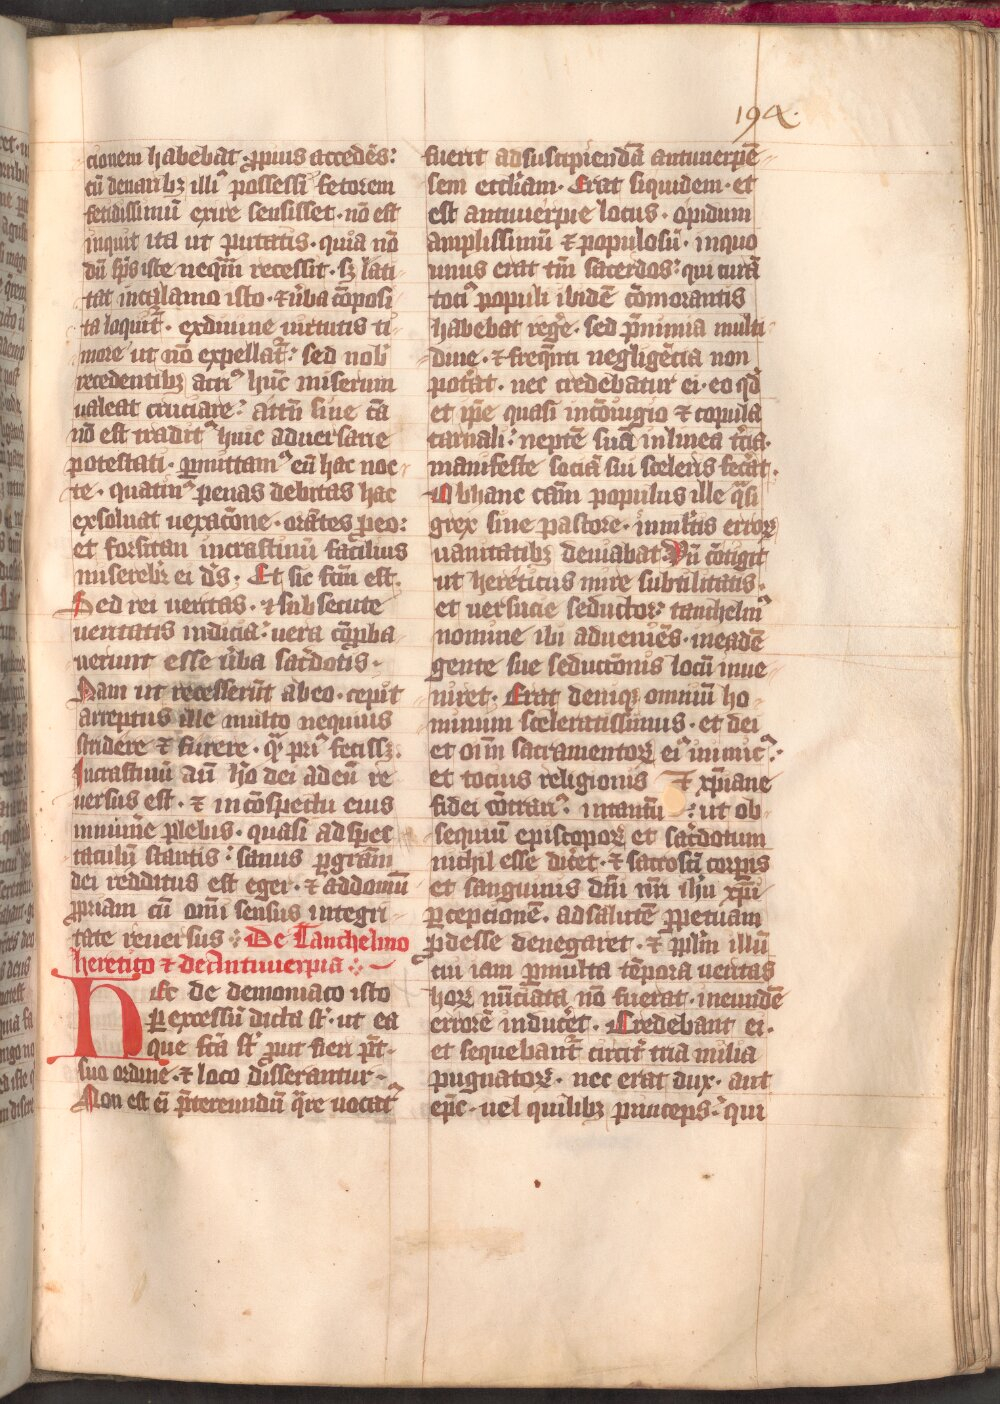 194.
cionem habebat ꝓpius accedēs:
cū denaribꝫ illiꝰ possessi fetorem
fetidissimū exire sensisset · nō est
inquit ita ut putatis · quia nō
dū sps̄ iste neqͣm̄ recessit · sꝫ lati-
tat in calamo isto · ⁊ ūba cōposi-
ta loquit᷑ · ex diuine uirtutis ti-
more ut nō expellat᷑: sed nob̄
recedentibꝫ acriꝰ hūc miserum
ualeat cruciare: attn̄ siue cā
nō est tradit᷑ huic aduersarie
potestati · ꝑmittamꝰ eū hac noc-
te · quatinꝰ penas debitas hac
exsoluat uexacōne · orātes ꝓ eo:
et forsitan in crastinū facilius
miserebit᷑ ei dn̄s · Et sic fcm̄ est.
Sed rei ueritas · ⁊ subsecute
ueritatis indicia: uera cōꝓba-
uerunt esse ūba sacd̄otis ·
Nam ut recesserūt ab eo · cepit
arreptus ille multo nequius
stridere ⁊ furere · qͣ priꝰ fecissꝫ.
In crastinū aū hō dei ad eū re-
uersus est · ⁊ in cōspectu eius
inmune plebis · quasi ad spec-
taculū stantis: sanus ꝑ gram̄
dei redditus est eger · ⁊ ad domū
ꝓpriam cū om̄i sensus integri-
tate reuersus ⁘ De Tanchelmo
heretico ⁊ de Antuuerpia ⁘
Hec de demoniaco isto
ꝑ excessū dicta st̄ · ut ea
que fcā st̄ put fieri pn̄t ·
suo ordine · ⁊ loco disserantur ·
Non est eī p̄tereundū qͣre uocatꝰ
fuerit ad suscipiendā antuuerpē-
sem eccliam · Erat siquidem · et
est antuuerpie locus · opidum
amplissimū ⁊ populosū · in quo
unus erat tm̄ sacerdos: qui curā
tociꝰ populi ibidē cōmorantis
habebat rege · sed p̄ nimia multi-
dine · ⁊ freqͣnti negligēcia non
potāt · nec credebatur ei · eo qd̄
et ipē quasi in cōiugio ⁊ copula
carnali: neptē suā in linea tcīa ·
manifeste sociā sui sceleris fecāt ·
Ob hanc cām populus ille qͣsi
grex sine pastore · in mltīs erroꝝ
uanitatibꝫ deuiabat · Vn̄ cōtigit
ut hereticus mire subtilitatis ·
et uersucie seductor: tanchelmꝰ
nomine ibi adueniēs · in eadē
gente sue seductōnis locū inue-
niret · Erat deniqꝫ omniū ho-
minum sceleratissimus · et dei
et om̄ sacramentoꝝ eiꝰ inimicꝰ:
et tocius religionis ⁊ xp̄iane
fidei cōtrariꝰ · in tantū: ut ob-
sequiū episcopoꝝ et sacd̄otum
nichil esse dicēt · ⁊ sacroscī corpis
et sanguinis dn̄i nr̄i ih̄u xp̄i
ꝑcepcionē · ad salutē ꝑpetuam
ꝓdesse denegaret · ⁊ ppl̄m illū
cui iam ꝑ multa tēpora ueritas
hoꝝ nūciata nō fuerat · in eundē
errorē inducēt · Credebant ei ·
et sequebant᷑ circit᷑ tria milia
pugnatoꝝ · nec erat dux · aut
ep̄c · uel quilibꝫ princeps: qui